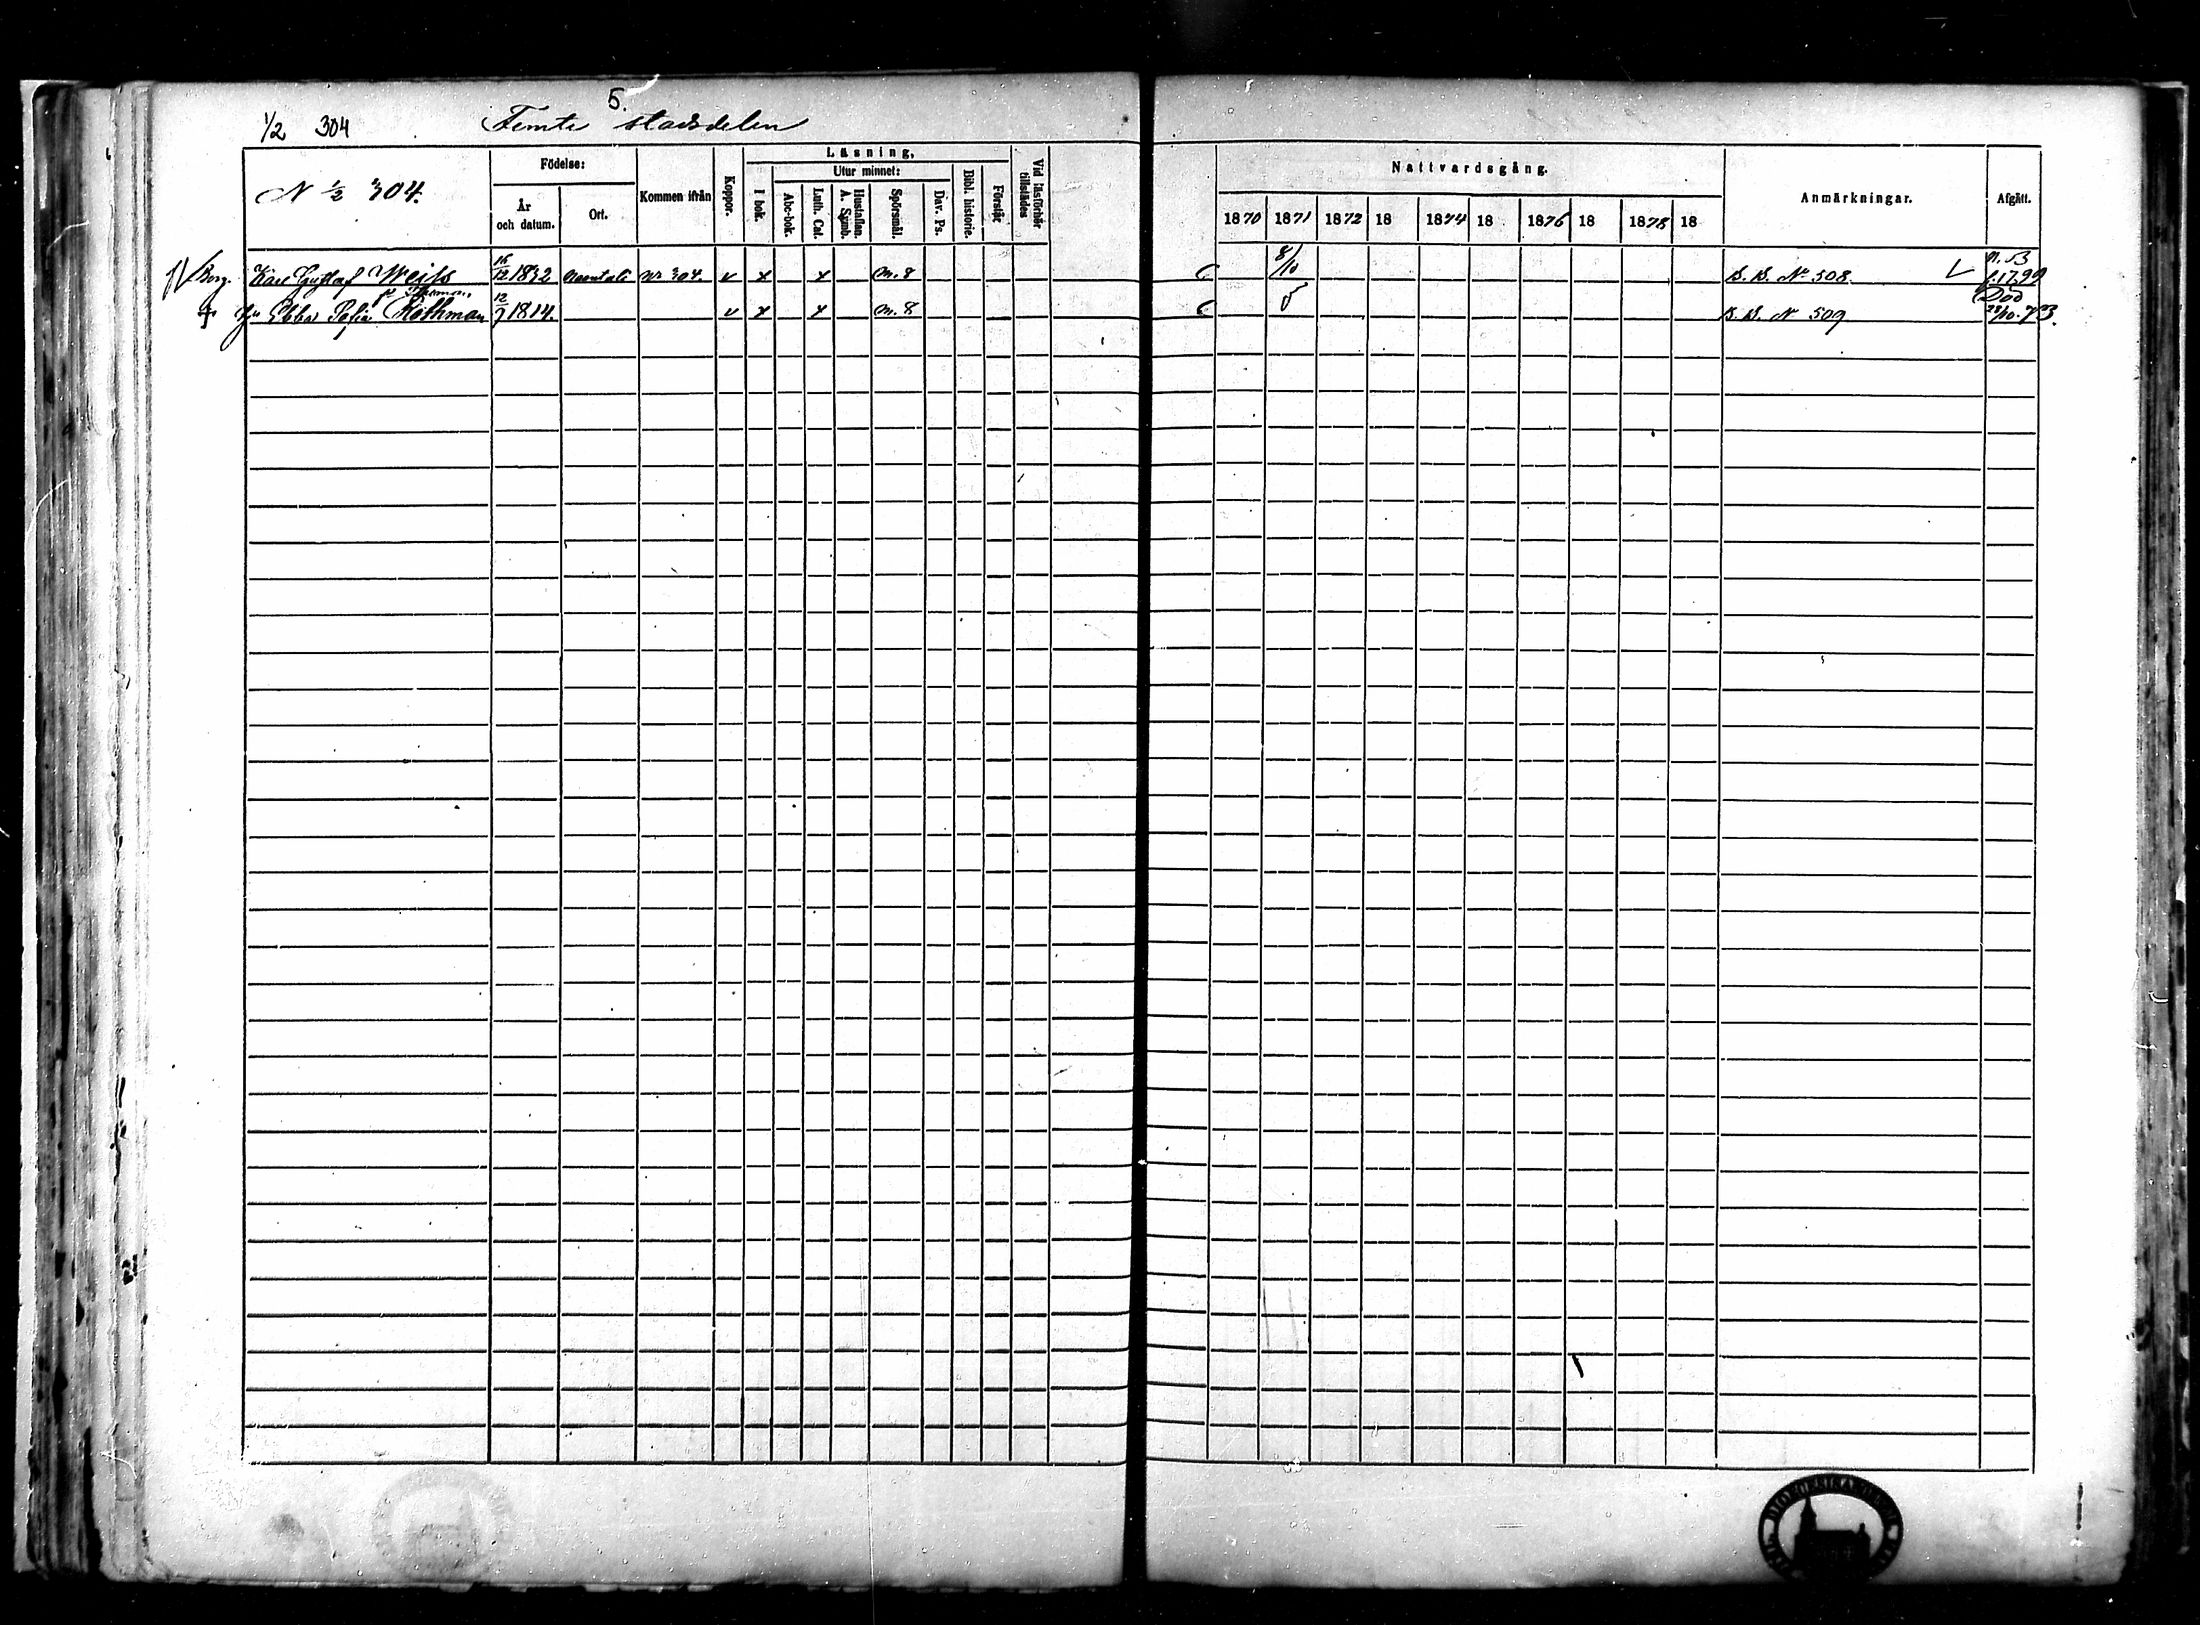 5.
1/2 304 Femte stadsdelen
N 1/2 304.
Födelse:
År och datum.
Ort.
Kommen ifrån
Koppor.
Läsning,
I bok.
Utur minnet:
Abc-bok.
Luth. Cat.
Hustaflan. A. Symb.
Spörsmål.
Dav. Ps.
Bibl. historie.
Förstår
Vid läsförhör tillstädes
Nattvardsgång.
1870 1871 1872 18 1874 18 1876 18 1878 18
Anmärkningar.
Afgått.
Borg. Karl Gustaf Weits 16/12 1832 Nontali Nr 304. v x x m. 8 8/10 S. B. No 508. n. 53 f. 1799
f
Hu Ebba Sofia Rothman 12/9 1814. v x x m. 8 S. B. N 509 Död 28/10. 73.